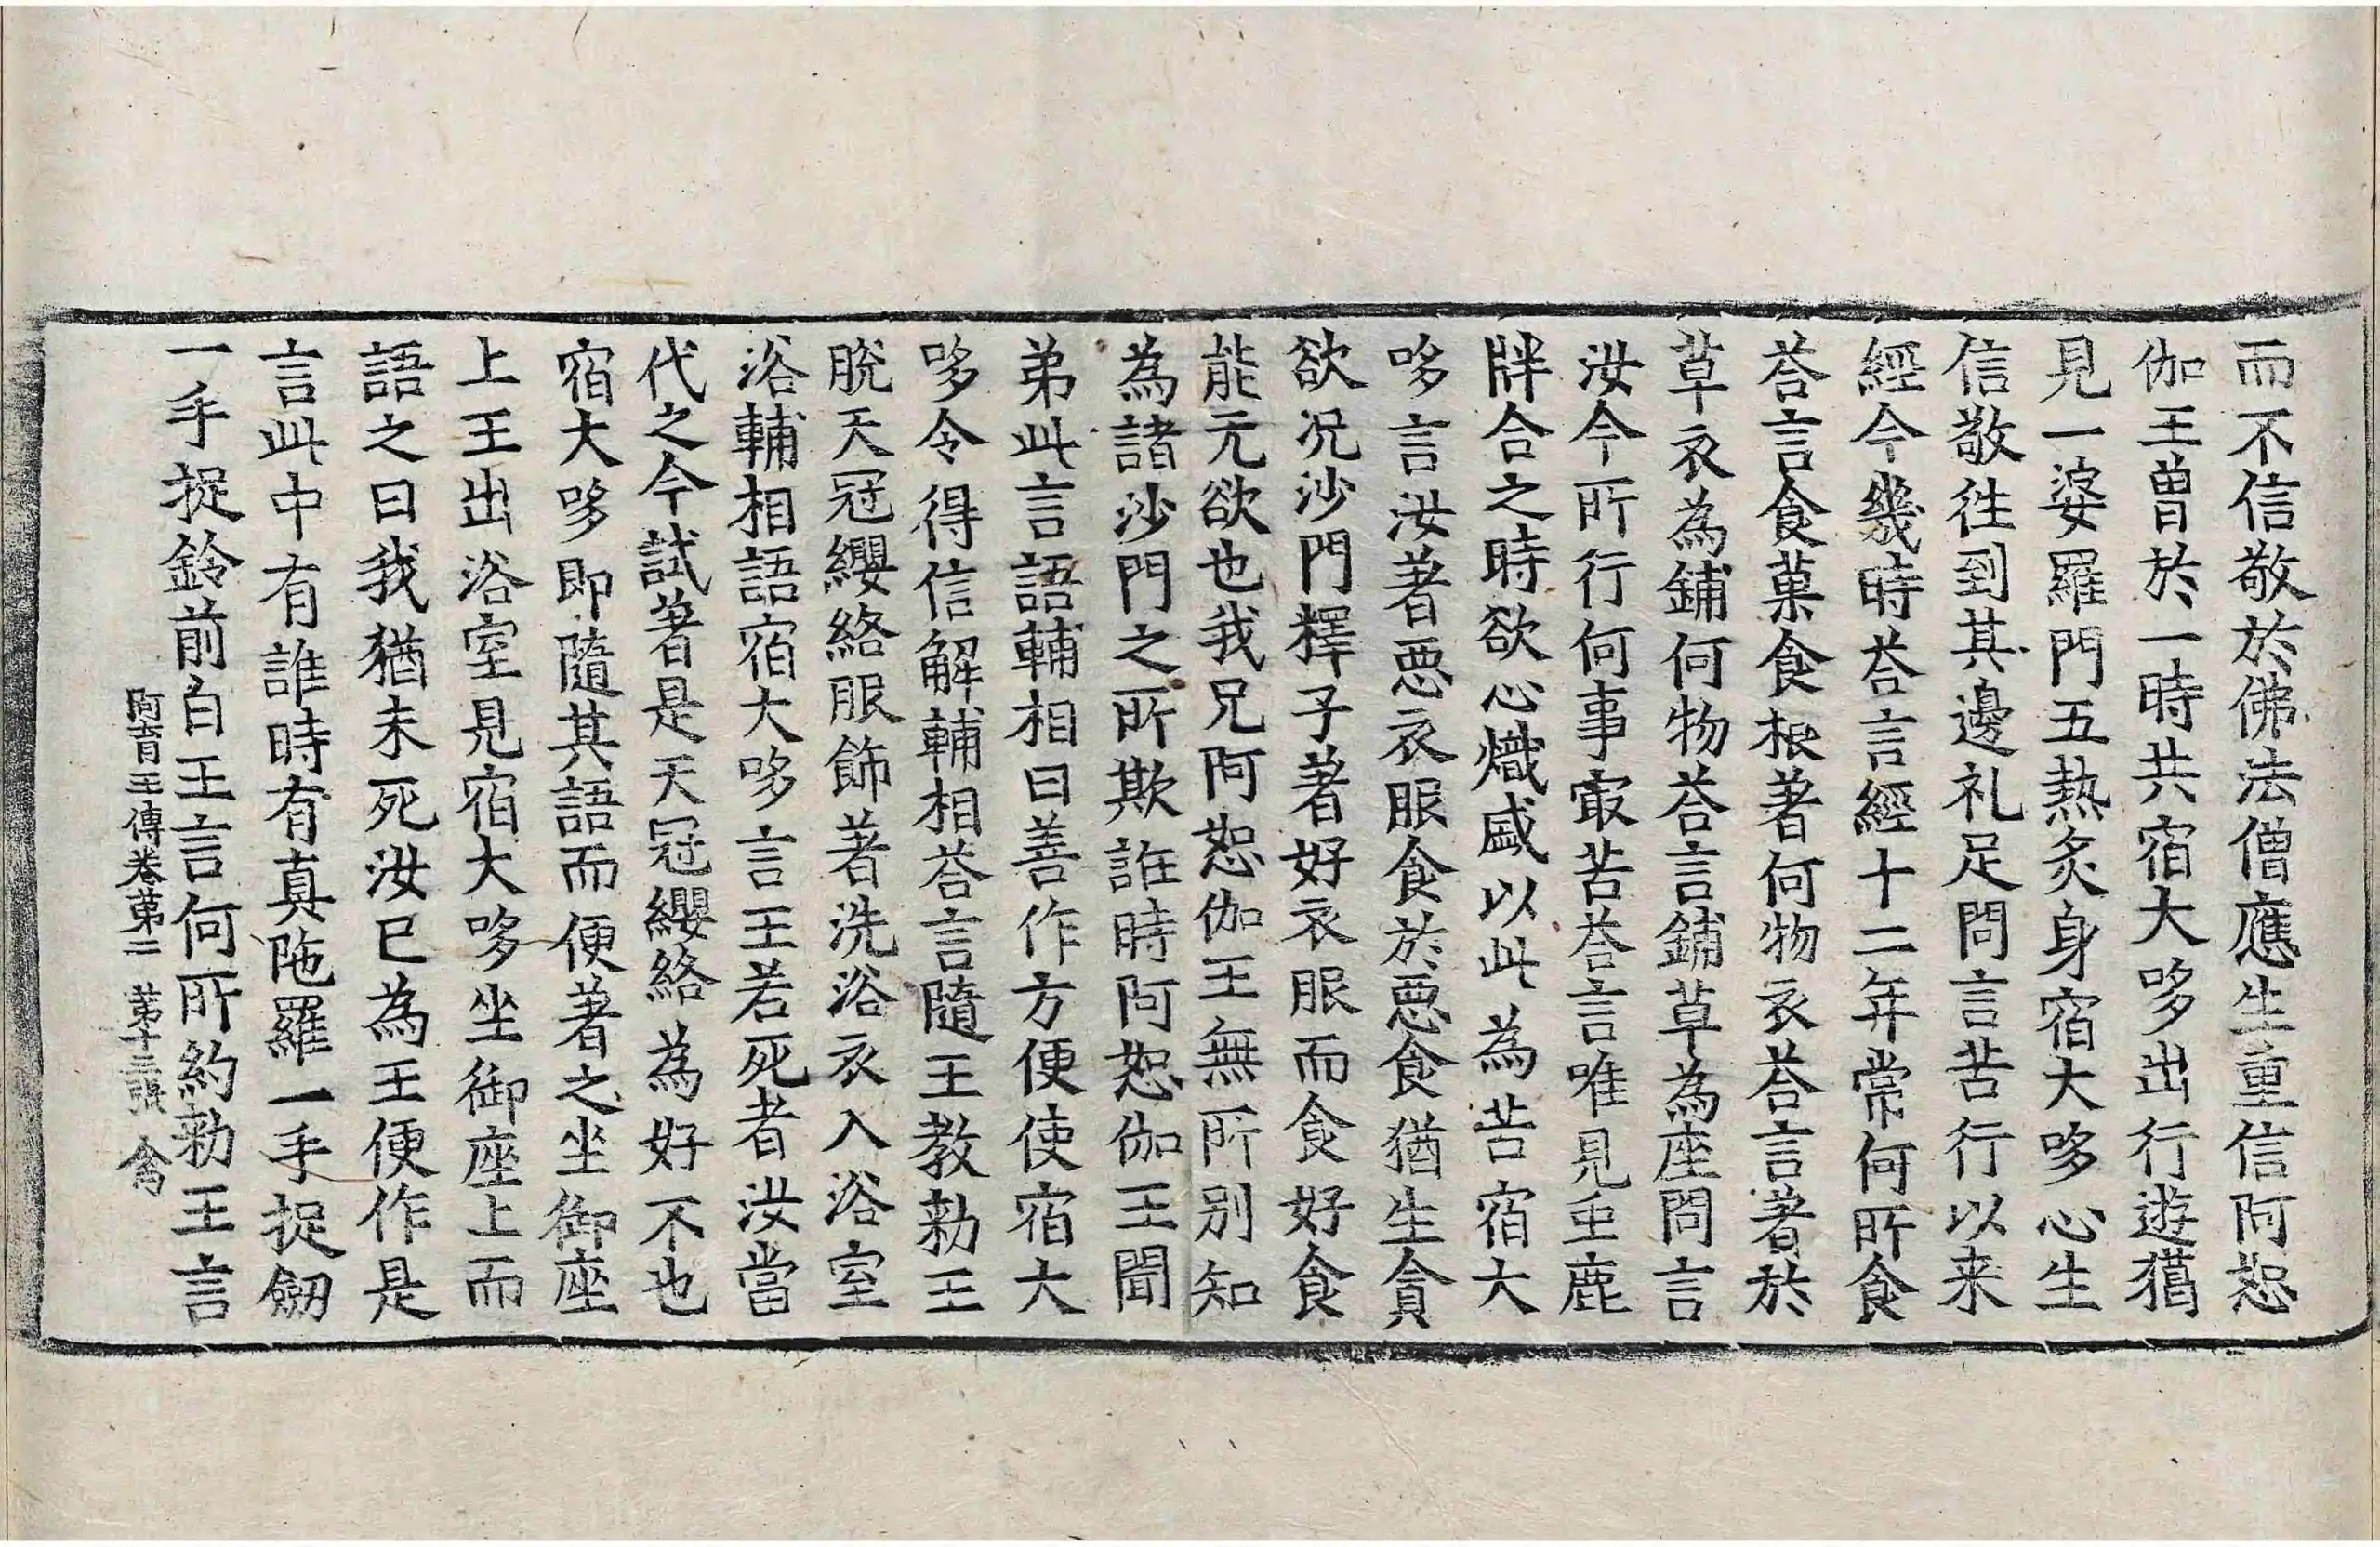 而不信敬於佛法僧應生重信阿恕
伽王曾於一時共宿大哆出行遊獦
見一婆羅門五熱炙身宿大哆心生
信敬往到其邊礼足問言苦行以来
經今幾時荅言經十二年常何所食
荅言食菓食根著何物衣荅言著於
草衣為鋪何物荅言鋪草為座問言
汝今所行何事㝡苦荅言唯見䖝鹿
牉合之時欲心熾盛以此為苦宿大
哆言汝著惡衣服食於惡食猶生貪
欲况沙門釋子著好衣服而食好食
能无欲也我兄阿恕伽王無所别知
為諸沙門之所欺誑時阿恕伽王聞
弟此言語輔相曰善作方便使宿大
哆令得信解輔相荅言隨王教勑王
脫天冠纓絡服飾著洗浴衣入浴室
浴輔相語宿大哆言王若死者汝當
代之今試著是天冠纓絡為好不也
宿大哆即隨其語而便著之坐御座
上王出浴室見宿大哆坐御座上而
語之曰我猶未死汝已為王便作是
言此中有誰時有真陁羅一手捉劒
一手捉鈴前白王言何所約勑王言
阿育王傳卷苐二 苐十三張 禽